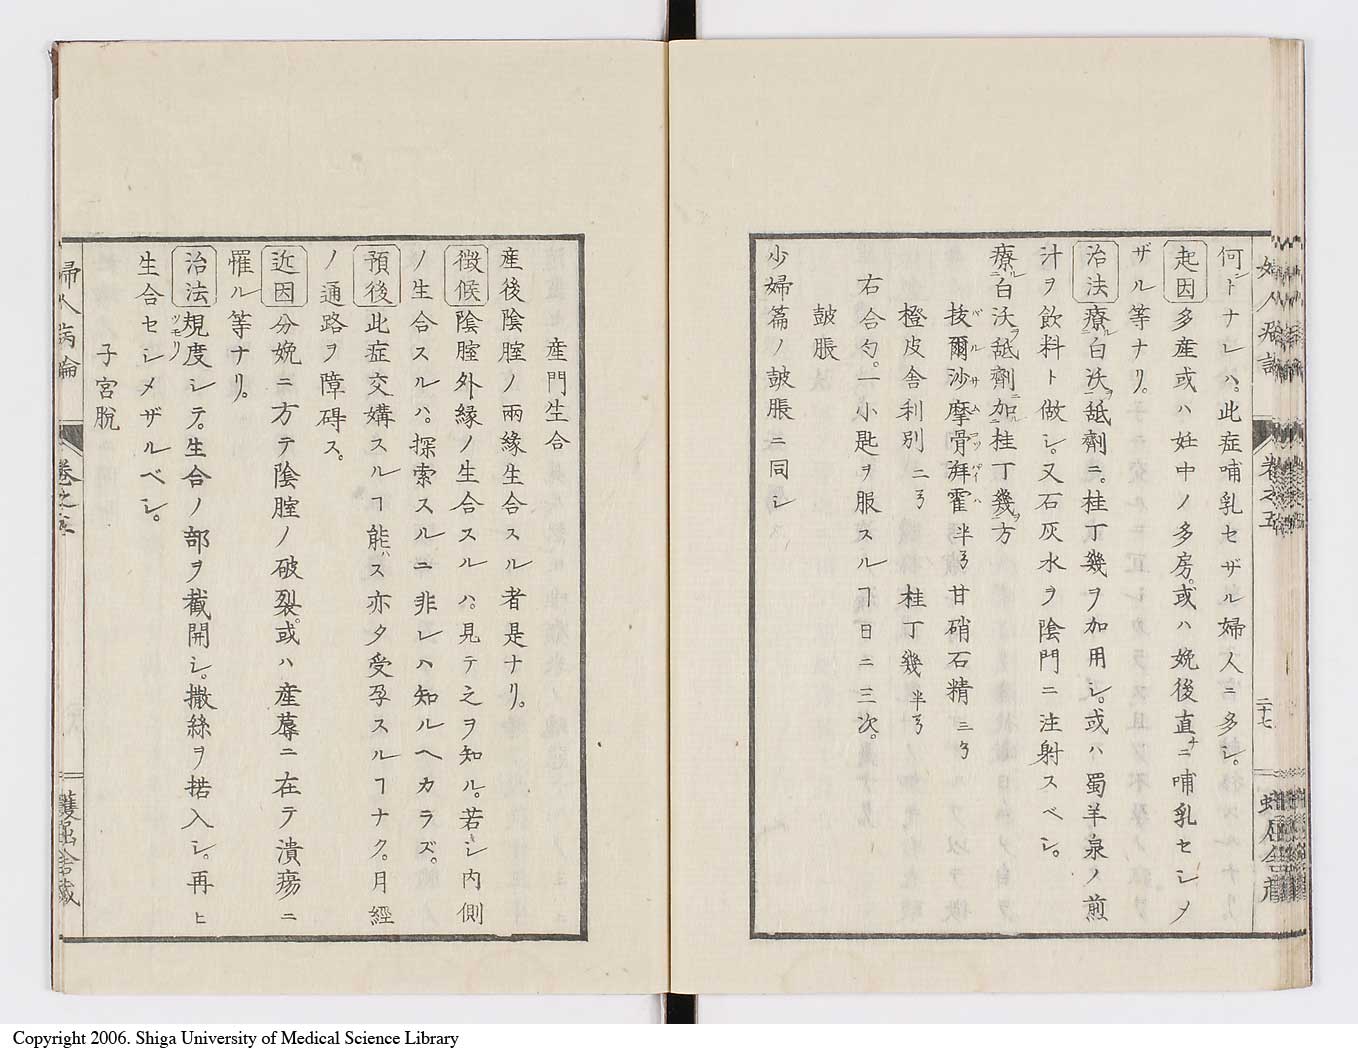 何トナレハ。此症哺乳セザル婦人ニ多シ。
起因 多産或ハ妊中ノ多房。或ハ娩後直ニ哺乳セシメ
ザル等ナリ。
治法 療白沃舐劑ニ。桂丁幾ヲ加用シ。或ハ蜀羊泉ノ煎
汁ヲ飲料ト做シ。又石灰水ヲ陰門ニ注射スベシ。
療白沃舐劑加桂丁幾方
抜爾沙摩骨湃霍 半 甘硝石精 三
橙皮舎利別 二 桂丁幾 半
右合匀。一小匙ヲ服スルヿ日ニ三次。
鼓脹
少婦篇ノ鼓脹ニ同シ
婦人病論 卷之五 二十七
産門生合
産後陰腟ノ兩緣生合スル者是ナリ。
徴候 陰腟外緣ノ生合スルハ。見テ之ヲ知ル。若シ内側
ノ生合スルハ。探索スルニ非レハ知ルヘカラズ。
預後 此症交媾スルヿ能ハス亦タ受孕スルヿナク。月經
ノ通路ヲ障碍ス。
近因 分娩ニ方テ陰腟ノ破裂。或ハ産蓐ニ在テ潰瘍ニ
罹ル等ナリ。
治法 規度シテ。生合ノ部ヲ截開シ。撒絲ヲ揩入シ。再ヒ
生合セシメザルベシ。
子宮脱
婦人病論 卷之五 蠖屈舎蔵
Copyright 2006. Shiga University of Medical Science Library